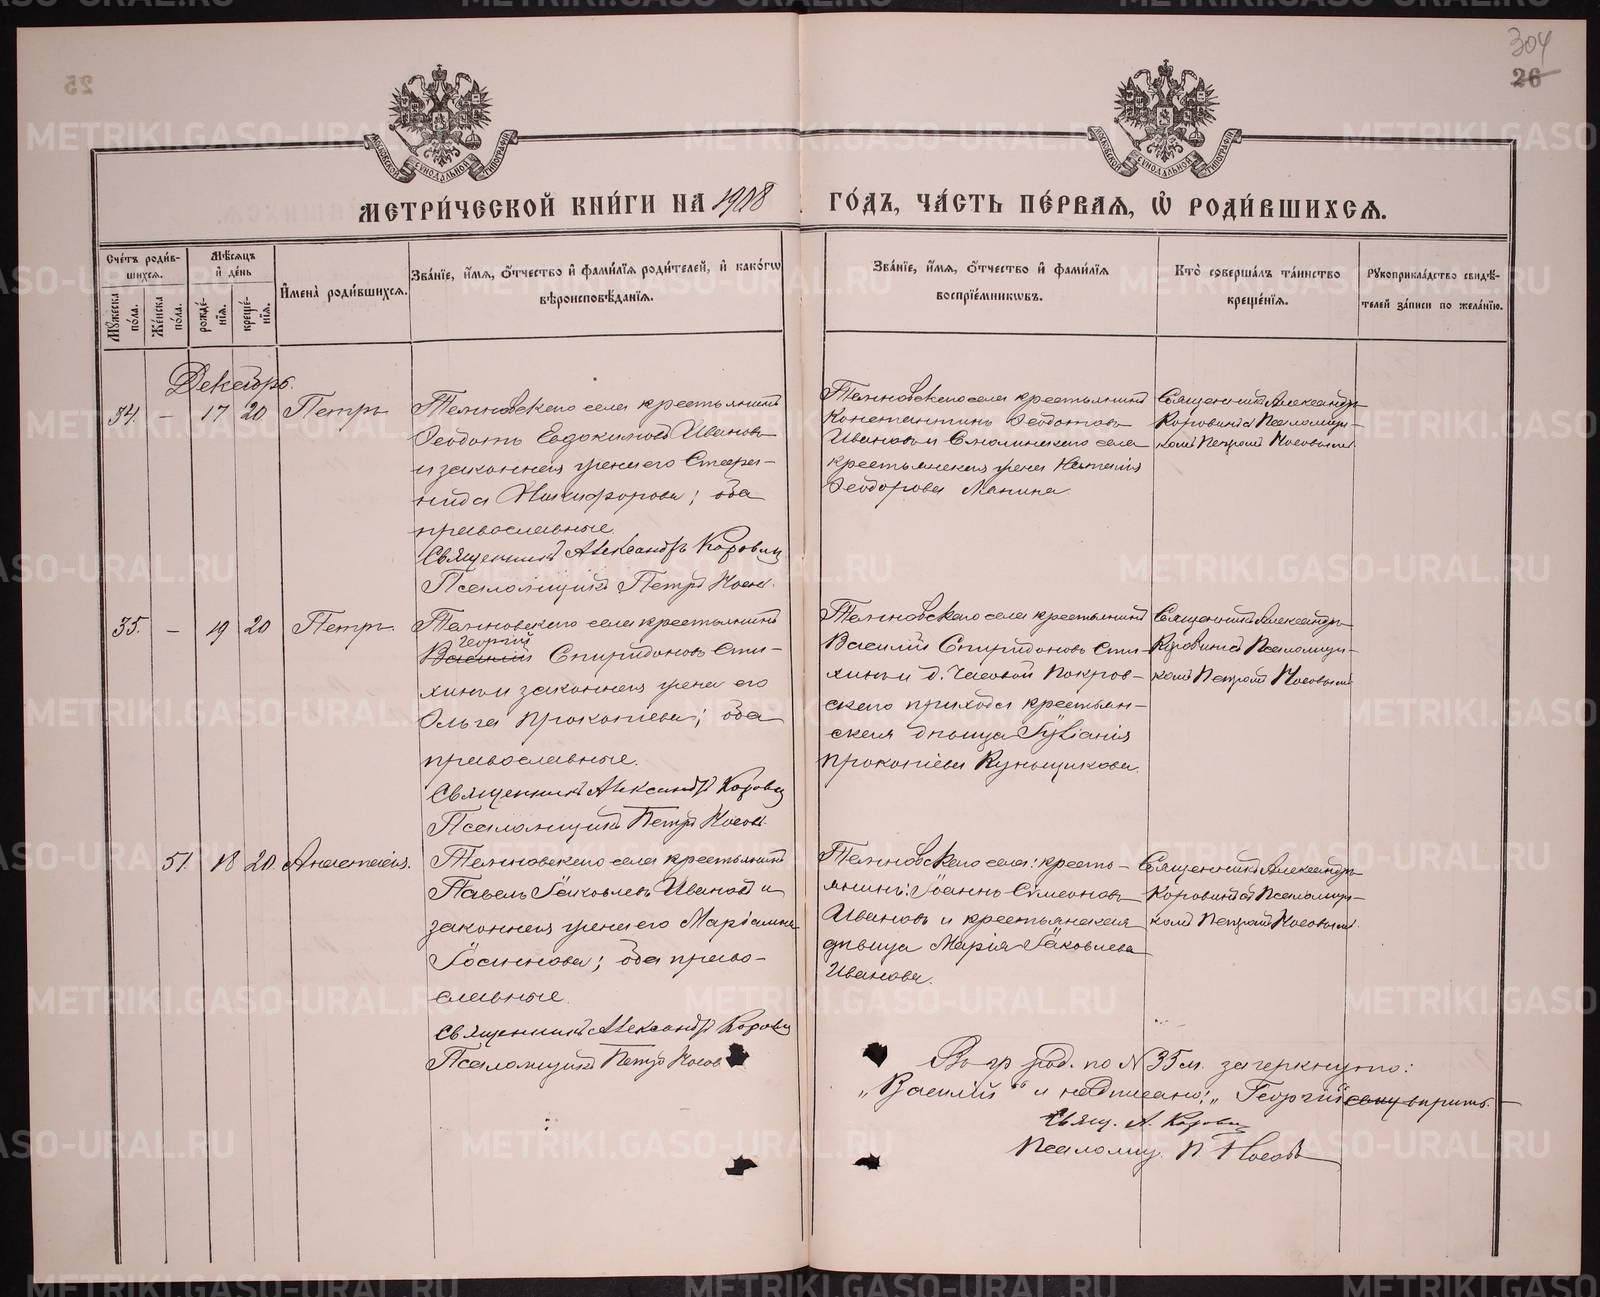 304
26
25
МОСКОВСКОЙ СѴНОДАЛЬНОЙ ТИПОГРАФІИ
МОСКОВСКОЙ СѴНОДАЛЬНОЙ ТИПОГРАФІИ
МЕТРИ́ЧЕСКОЙ КНИ́ГИ НА 1908 ГО́ДЪ, ЧА́СТЬ ПЕ́РВАЯ, Ѡ РОДИ́ВШИХСѦ.
Сче́тъ роди́в-
шихсѧ.
Мѣ́сѧцъ
и҆ де́нь
Мꙋ́жеска по́ла.
Же́нска по́ла.
рожде́-нїѧ.
креще́-нїѧ.
И҆мена̀ роди́вшихсѧ.
Зва́нїе, и҆́мѧ, ѻ҆́тчество и҆ фами́лїѧ роди́телей, и҆ како́гѡ
вѣроисповѣ́данїѧ.
Зва́нїе, и҆́мѧ, ѻ҆́тчество и҆ фами́лїѧ
воспрїе́мникѡвъ.
Кто̀ соверша́лъ та́инство
креще́нїѧ.
Рꙋкоприкла́дство свидѣ́-
телей за́писи по жела́нїю.
Декабрь.
34. – 17 20 Петръ
села крестьянинъ
Ѳеодотъ Евдокимовъ Ивановъ
и законная жена его
Никифорова; оба
православные.
Священникъ Александръ Коровин
Псаломщикъ Петръ Носов.
села крестьянинъ
Константинъ Ѳеодотовъ
Ивановъ и села
крестьянская жена Наталія
Ѳеодорова
Священникъ Александръ
Коровинъ съ Псаломщи-
комъ Петромъ Носовымъ.
35. – 19 20 Петръ
села крестьянинъ
Георгій
Василій Спиридоновъ Сти-
хинъ и законная жена его
Ольга Прокопіева; оба
православные.
Священникъ Александръ Коровин
Псаломщикъ Петръ Носов.
села крестьянинъ
Василій Спиридоновъ Сти-
хинъ и д. Часовой Покров-
скаго прихода крестьян-
ская дѣвица Іуліанія
Прокопіева
Священникъ Александръ
Коровинъ съ Псаломщи-
комъ Петромъ Носовымъ
51. 18 20. Анастасія.
села крестьянинъ
Павелъ Іаковлевъ Ивановъ и
законная жена его Маріамна
Іосифова; оба право-
славные.
Священникъ Александръ Коровин
Псаломщикъ Петръ Носов
села: кресть-
янинъ: Іоаннъ Симеоновъ
Ивановъ и крестьянская
дѣвица Марія Іаковлева
Иванова.
Священникъ Александръ
Коровинъ съ Псаломщи-
комъ Петромъ Носовымъ.
Въ гр. род. по № 35 м. зачеркнуто:
„Василій“ и надписано: „Георгій вѣрить.
Свящ. А. Коровин
Псаломщ. П. Носовъ
METRIKI.GASO-URAL.RU